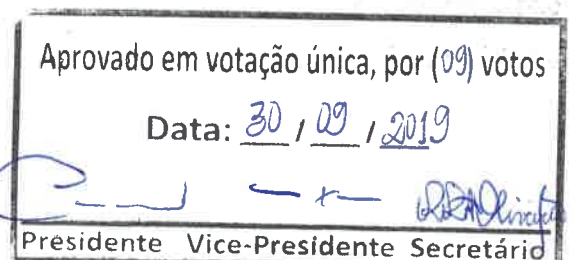 Aprovado em votação única, por (09) votos
Data: 30 / 09 / 2019
Presidente Vice-Presidente Secretário